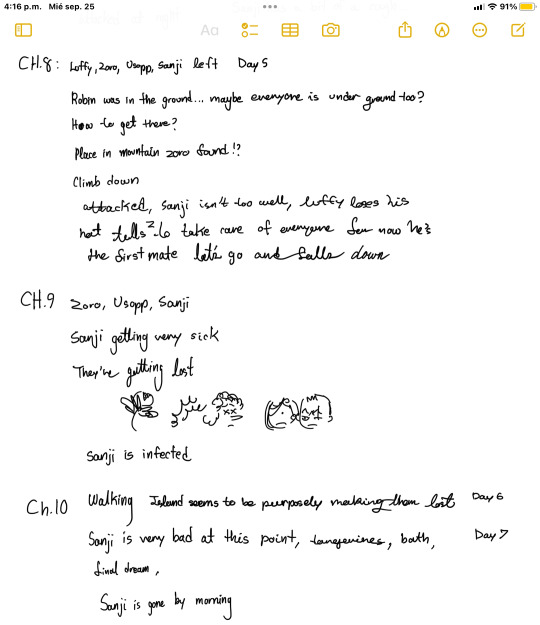 4:16 p.m. Mié sep. 25
91%
Aa
CH.8: Luffy, Zoro, Usopp, Sanji left Day 5
Robin was in the ground... maybe everyone is under ground too?
How to get there?
Place in mountain zoro found!?
Climb down
attacked, Sanji isn't too well, luffy loses his
hat tells Z to take care of everyone for now he's
the first mate let's go and falls down
CH.9 Zoro, Usopp, Sanji
Sanji getting very sick
They're getting lost
Sanji is infected
Ch.10 Walking Island seems to be purposely making them lost Day 6
Sanji is very bad at this point, tangerines, bath, Day 7
final dream,
Sanji is gone by morning